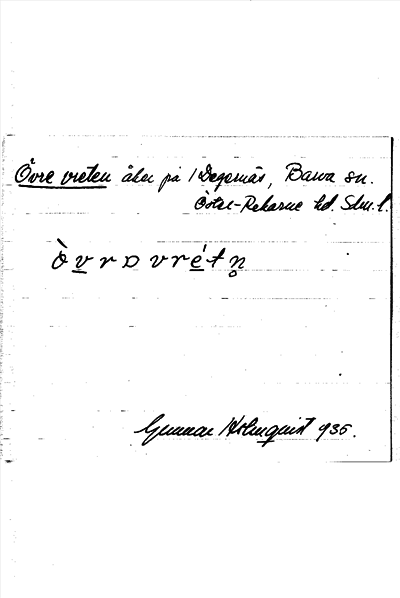 Övre vreten åker på 1 Degernäs, Barva sn.
Öster-Rekarne hd. Sdm.l.
ò̀v̲rɒ vré̲tn̥
Gunnar Holmquist 935.